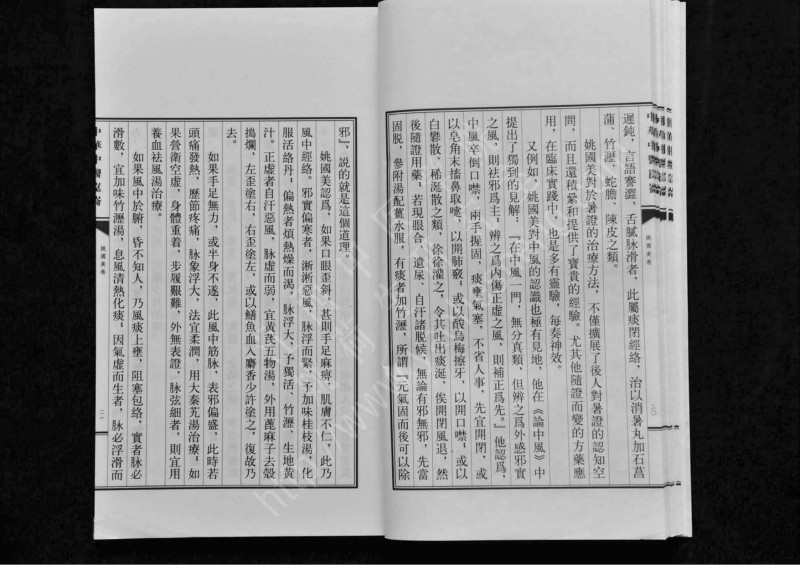 遲鈍，言語謇澀，舌膩脉滑者，此屬痰閉經絡，治以消暑丸加石菖
蒲、竹瀝、蛇膽、陳皮之類。
姚國美對於暑證的治療方法，不僅擴展了後人對暑證的認知空
間，而且還積纍和提供了寶貴的經驗。尤其他隨證而變的方藥應
用，在臨床實踐中，也是多有靈驗，每奏神效。
又例如，姚國美對中風的認識也極有見地，他在《論中風》中
提出了獨到的見解：『在中風一門，無分真類，但辨之爲外感邪實
之風，則祛邪爲主；辨之爲内傷正虚之風，則補正爲先。』他認爲，
中風卒倒口噤，兩手握固，痰壅氣塞，不省人事，先宜開閉，或
以皂角末搐鼻取嚏，以開肺竅；或以酸烏梅擦牙，以開口噤；或以
白礬散、稀涎散之類，徐徐灌之，令其吐出痰涎，俟開閉風退，然
後隨證用藥。若現眼合、遺尿、自汗諸脱候，無論有邪無邪，先當
固脱，參附湯配薑水服，有痰者加竹瀝，所謂『元氣固而後可以除
二〇
邪』，説的就是這個道理。
姚國美認爲，如果口眼歪斜，甚則手足麻痹，肌膚不仁，此乃
風中經絡。邪實偏寒者，淅淅惡風，脉浮而緊，予加味桂枝湯，化
服活絡丹；偏熱者煩熱燥而渴，脉浮大，予獨活、竹瀝、生地黄
汁。正虚者自汗惡風，脉虚而弱，宜黄芪五物湯，外用蓖麻子去殻
搗爛，左歪塗右，右歪塗左，或以鱔魚血入麝香少許塗之，復故乃
去。
如果手足無力，或半身不遂，此風中筋脉，表邪偏盛，此時若
頭痛發熱，歷節疼痛，脉象浮大，法宜柔潤，用大秦艽湯治療；如
果營衛空虚，身體重着，步履艱難，外無表證，脉弦細者，則宜用
養血祛風湯治療。
如果風中於腑，昏不知人，乃風痰上壅，阻塞包絡，實者脉必
滑數，宜加味竹瀝湯，息風清熱化痰；因氣虚而生者，脉必浮滑而
姚國美卷
二一